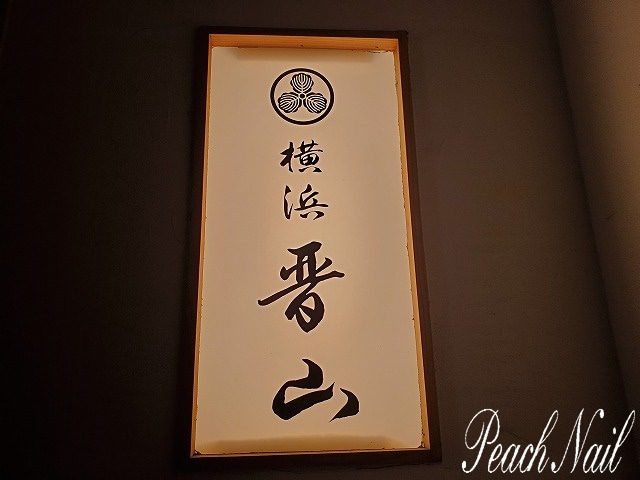 横浜
晋山
Peach Nail